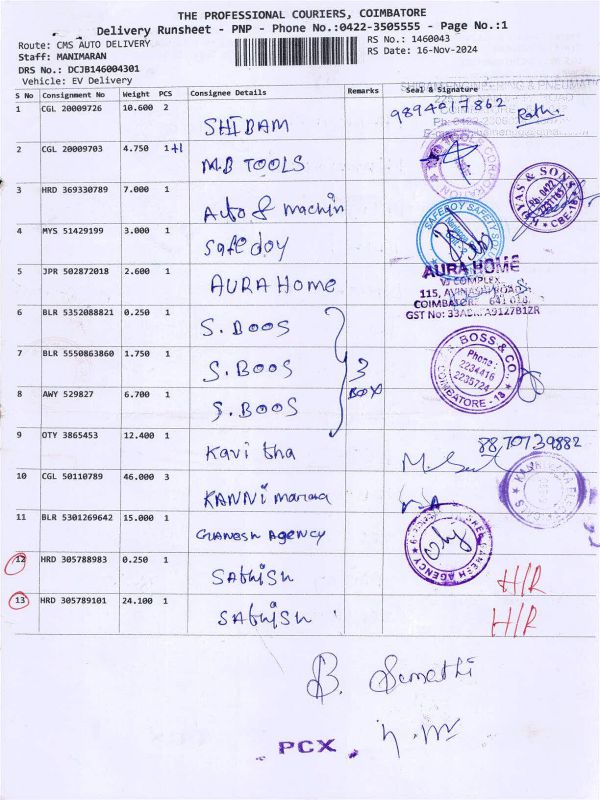 THE PROFESSIONAL COURIERS, COIMBATORE
Delivery Runsheet - PNP - Phone No.:0422-3505555 - Page No.:1
Route: CMS AUTO DELIVERY RS No.: 1460043
Staff: MANIMARAN RS Date: 16-Nov-2024
DRS No.: DCJB146004301
Vehicle: EV Delivery
S No Consignment No Weight PCS Consignee Details Remarks Seal & Signature
1 CGL 20009726 10.600 2 SHIBAM 9894617862
2 CGL 20009703 4.750 1+1 M.B TOOLS
3 HRD 369330789 7.000 1 Auto & machin
& SONS
CBE-18
4 MYS 51429199 3.000 1 Safe doy
SAFEDOY SAFETY
5 JPR 502872018 2.600 1 AURA Home
AURA HOME
VJ COMPLEX
115, AVINASHI ROAD
COIMBATORE 641 018
GST No:
6 BLR 5352088821 0.250 1 S. BOOS
7 BLR 5550863860 1.750 1 S. BOOS 3
8 AWY 529827 6.700 1 S. BOOS BOX
BOSS & CO.
Phone:
2234416
2235724
COIMBATORE - 18
9 OTY 3865453 12.400 1 Kavi tha 8870739882
10 CGL 50110789 46.000 3 KANNI marra
11 BLR 5301269642 15.000 1 Ganesh Agency
12 HRD 305788983 0.250 1 Sathish H/R
13 HRD 305789101 24.100 1 Sathish H/R
B. Sumathi
PCX